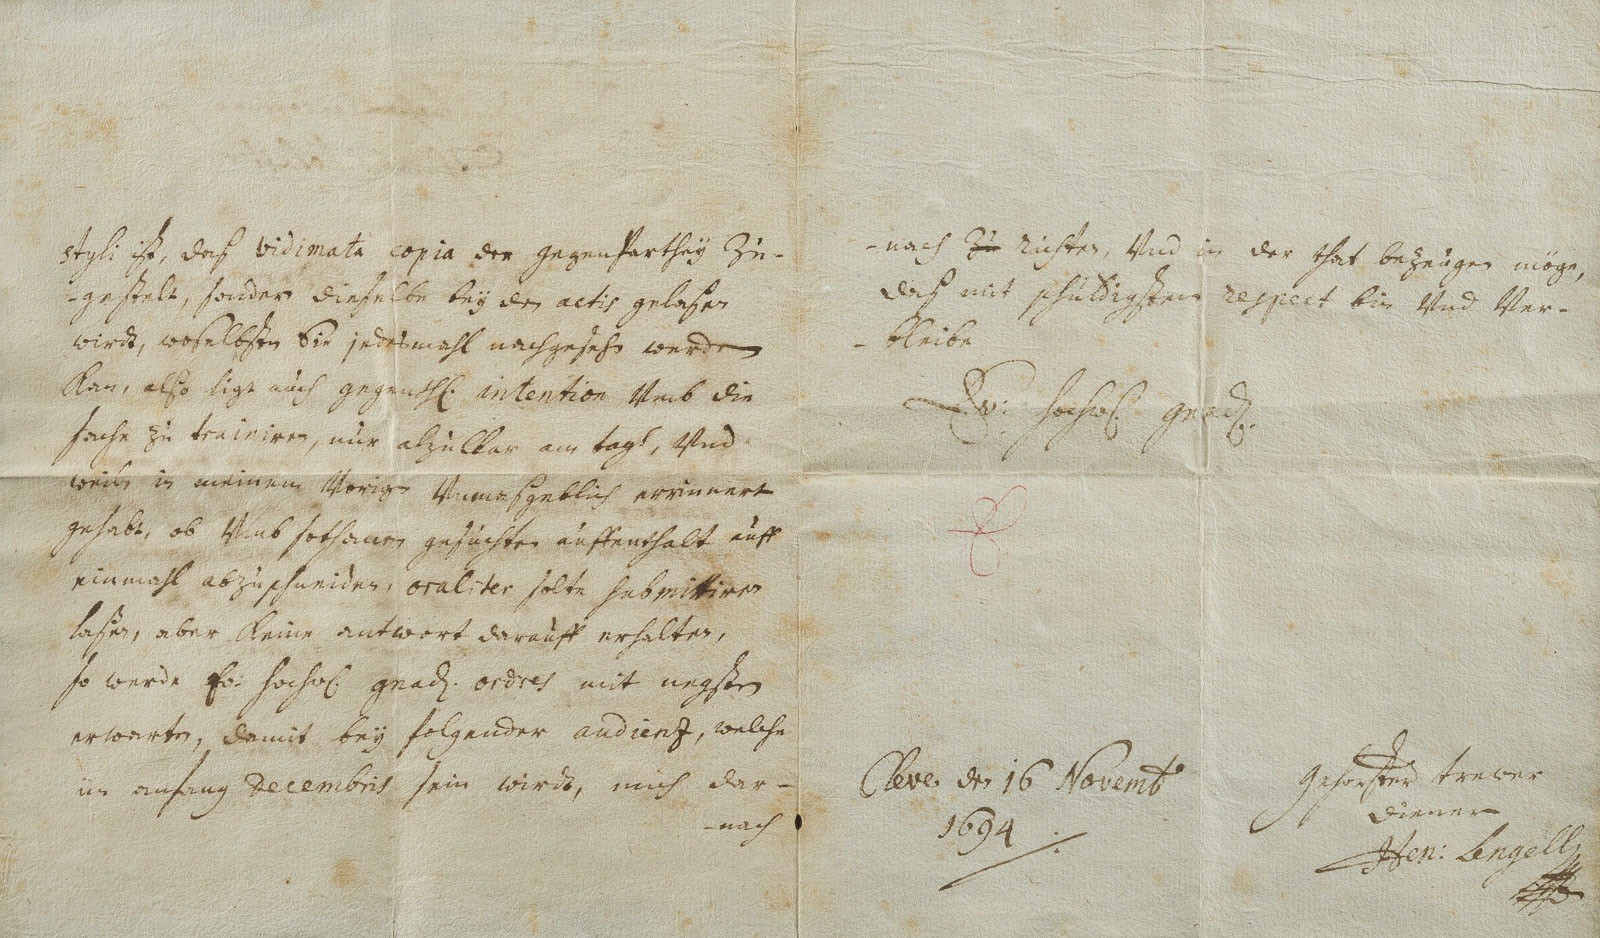 styli ist, daß vidimata copia der gegenParthey Zu-
-gestelt, sonder dieselbe bey den actis gelaßen
wirdt, woselbsten Sie jedesmahl nachgesehn werden
Kan, also ligt auch gegenthl. intention Umb die
sache zu trainiren, nur alzuklar am tagh, Und
in meinem Vorigen Unmasgeblich errinnert
gehabt, ob Umb sothanen gesuchten auffenthalt auff
einmahl abzuschneiden, oraliter solte submittiren
laßen, aber Keine antwort darauff erhalten,
so werde Ew: hochwl. gnad. ordres mit negsten
erwarten, damit bey folgender audientz, welche
im anfang Decembris sein wirdt, mich dar-
-nach
-nach zu richten, Und in der that bezeugen möge,
daß mit schuldigsten respect bin Und Ver-
-bleibe
Ew: hochwl. gnad.
Cleve den 16 Novemb
1694
gehorster trewer
diener
Hen: Lengell